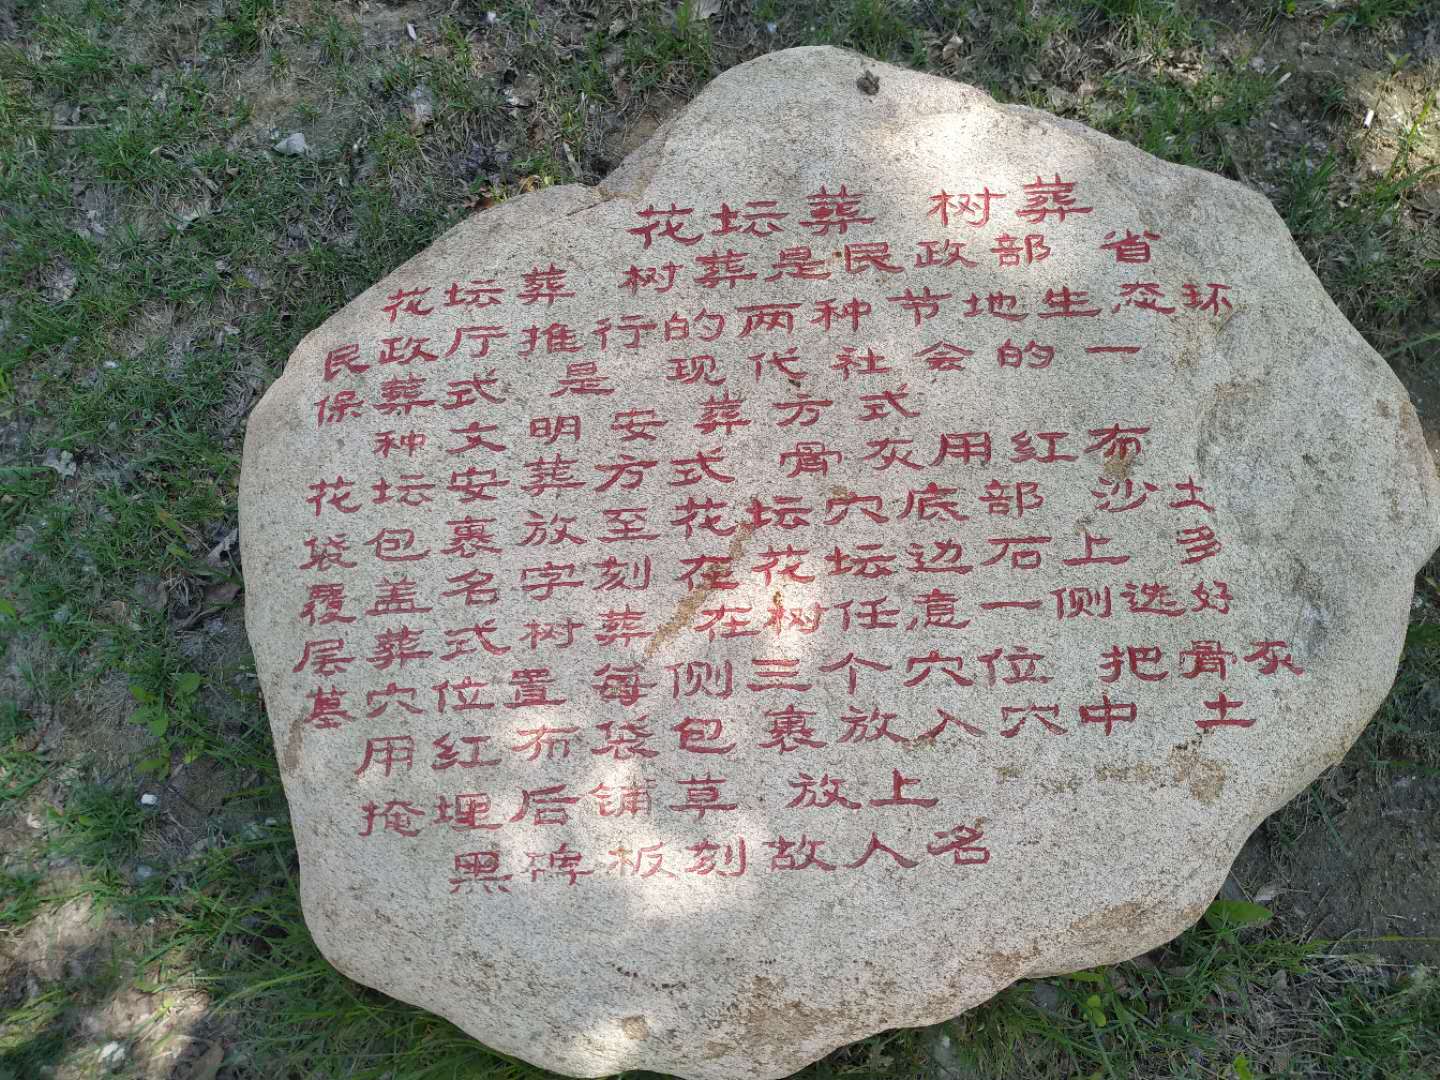 花坛葬 树葬
花坛葬 树葬是民政部 省
民政厅推行的两种节地生态环
保葬式 是 现代社会的一
种文明安葬方式
花坛安葬方式 骨灰用红布
袋包裹放至花坛穴底部 沙土
覆盖名字刻在花坛边石上 多
层葬式树葬 在树任意一侧选好
墓穴位置每侧三个穴位 把骨灰
用红布袋包裹放入穴中 土
掩埋后铺草 放上
黑碑板刻故人名